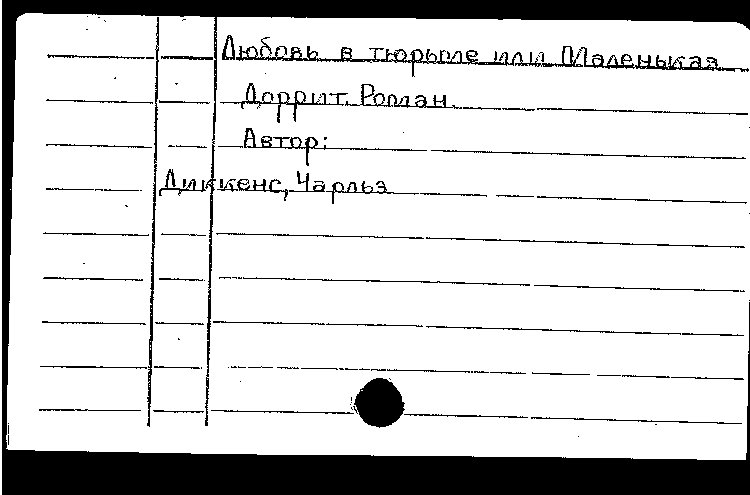 Любовь в тюрьме или Маленькая
Доррит. Роман.
Автор:
Диккенс, Чарльз